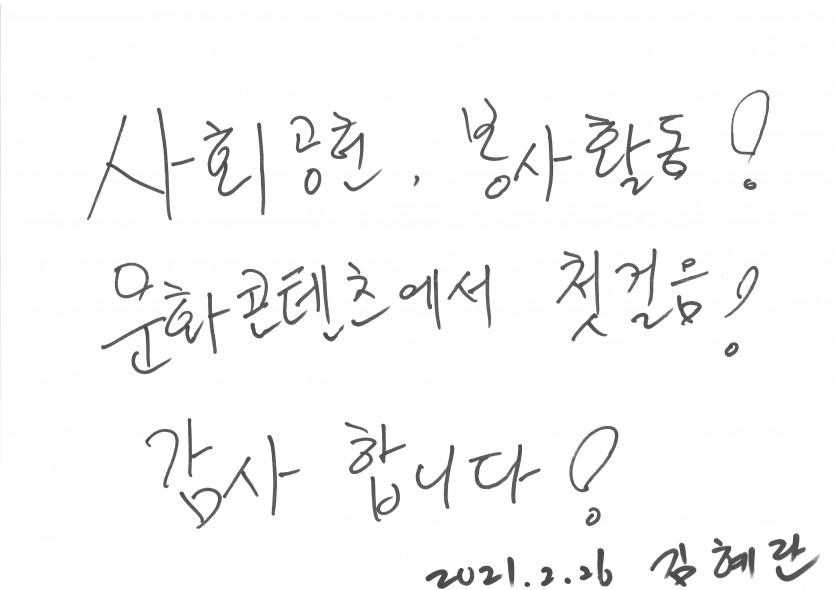 사회공헌, 봉사활동!
문화콘텐츠에서 첫걸음!
감사 합니다!
2021.2.26 김혜란